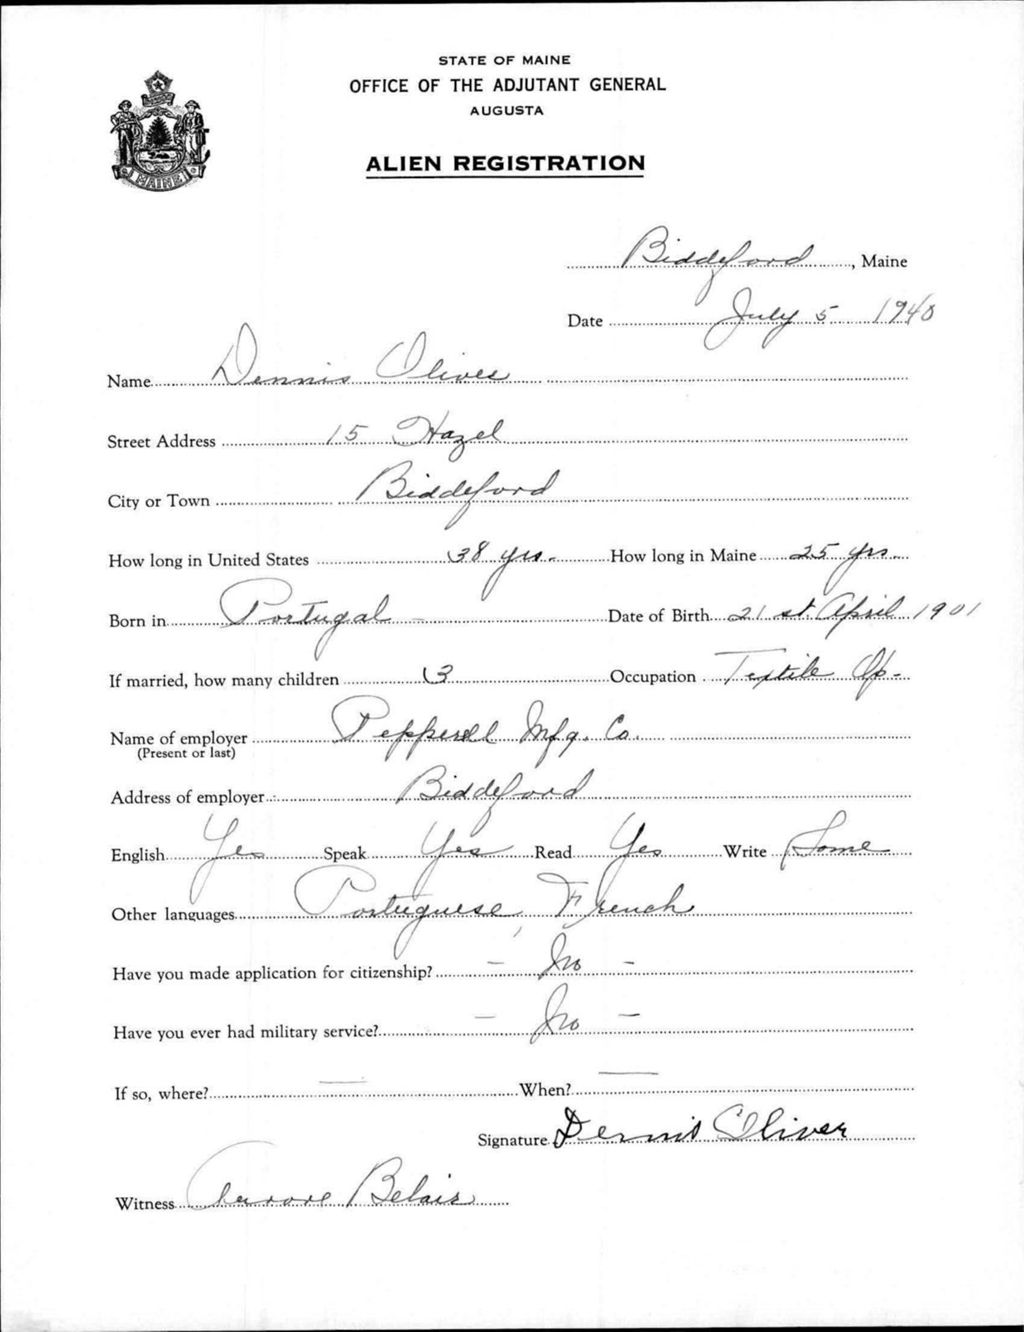 STATE OF MAINE
OFFICE OF THE ADJUTANT GENERAL
AUGUSTA
ALIEN REGISTRATION
MAINE
Biddeford, Maine
Date July 5 1940
Name Dennis Oliver
Street Address 15 Hazel
City or Town Biddeford
How long in United States 38 yrs. How long in Maine 25 yrs
Born in Portugal Date of Birth 21st April 1901
If married, how many children 3 Occupation Textile Op-
Name of employer Pepperell Mfg. Co.
(Present or last)
Address of employer Biddeford
English Yes Speak Yes Read Yes Write Some
Other languages Portuguese, French
Have you made application for citizenship? - No -
Have you ever had military service? - No -
If so, where? — When? —
Signature Dennis Oliver
Witness Aurore Belair